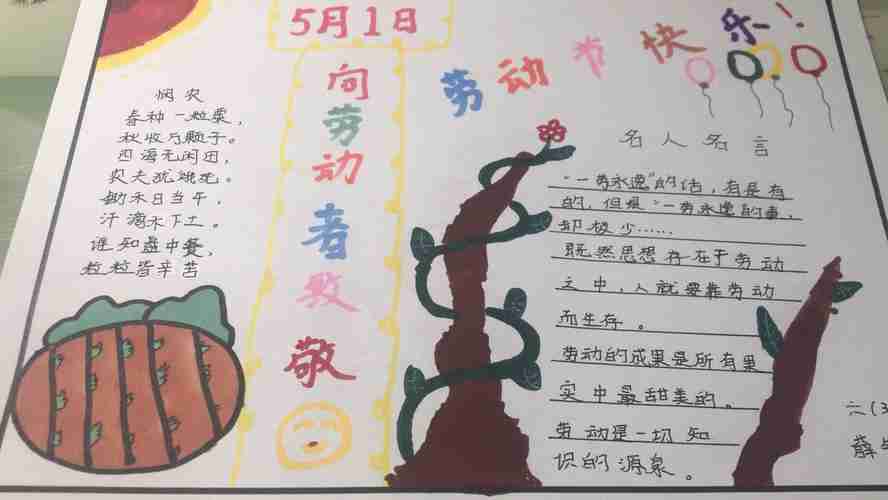 5月1日
向劳动者致敬
劳动节快乐！
悯农
春种一粒粟，
秋收万颗子。
四海无闲田，
农夫犹饿死。
锄禾日当午，
汗滴禾下土。
谁知盘中餐，
粒粒皆辛苦
名人名言
“一劳永逸”的话，有是有
的，但是“一劳永逸的事，
却极少……
既然思想存在于劳动
之中，人就要靠劳动
而生存。
劳动的成果是所有果
实中最甜美的。
劳动是一切知
识的源泉。
六(3
薛